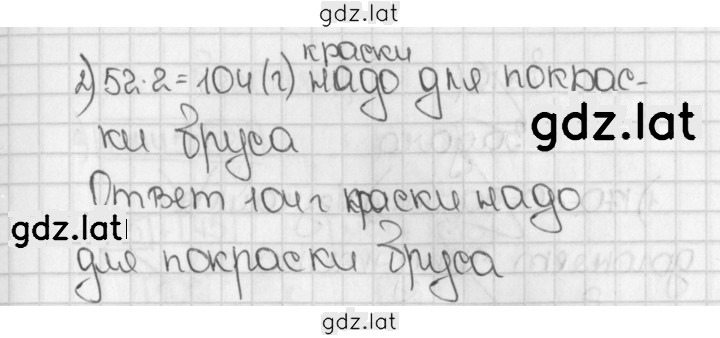 gdz.lat
краски
2) 52·2=104(г) надо для покрас-
gdz.lat
ки бруса
Ответ 104 г краски надо
gdz.lat
для покраски бруса
gdz.lat